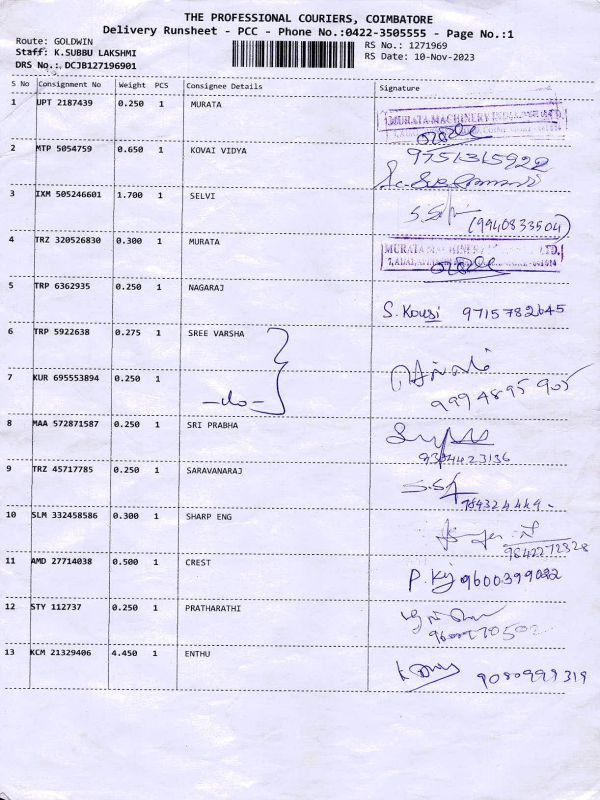 THE PROFESSIONAL COURIERS, COIMBATORE
Delivery Runsheet - PCC - Phone No.:0422-3505555 - Page No.:1
Route: GOLDWIN
RS No.: 1271969
Staff: K.SUBBU LAKSHMI
RS Date: 10-Nov-2023
DRS No.: DCJB127196901
S No Consignment No Weight PCS Consignee Details Signature
1 UPT 2187439 0.250 1 MURATA
MURATA MACHINERY INDIA
2 MTP 5054759 0.650 1 KOVAI VIDYA 9751315922
3 IXM 505246601 1.700 1 SELVI
(9940833504)
4 TRZ 320526830 0.300 1 MURATA
MURATA MACHINERY LTD.
5 TRP 6362935 0.250 1 NAGARAJ
S. Kousi 9715782645
6 TRP 5922638 0.275 1 SREE VARSHA
7 KUR 695553894 0.250 1
-do-
9994895905
8 MAA 572871587 0.250 1 SRI PRABHA
9384423136
9 TRZ 45717785 0.250 1 SARAVANARAJ
10 SLM 332458586 0.300 1 SHARP ENG
9842272328
11 AMD 27714038 0.500 1 CREST
9600399022
12 STY 112737 0.250 1 PRATHARATHI
13 KCM 21329406 4.450 1 ENTHU
9080999319